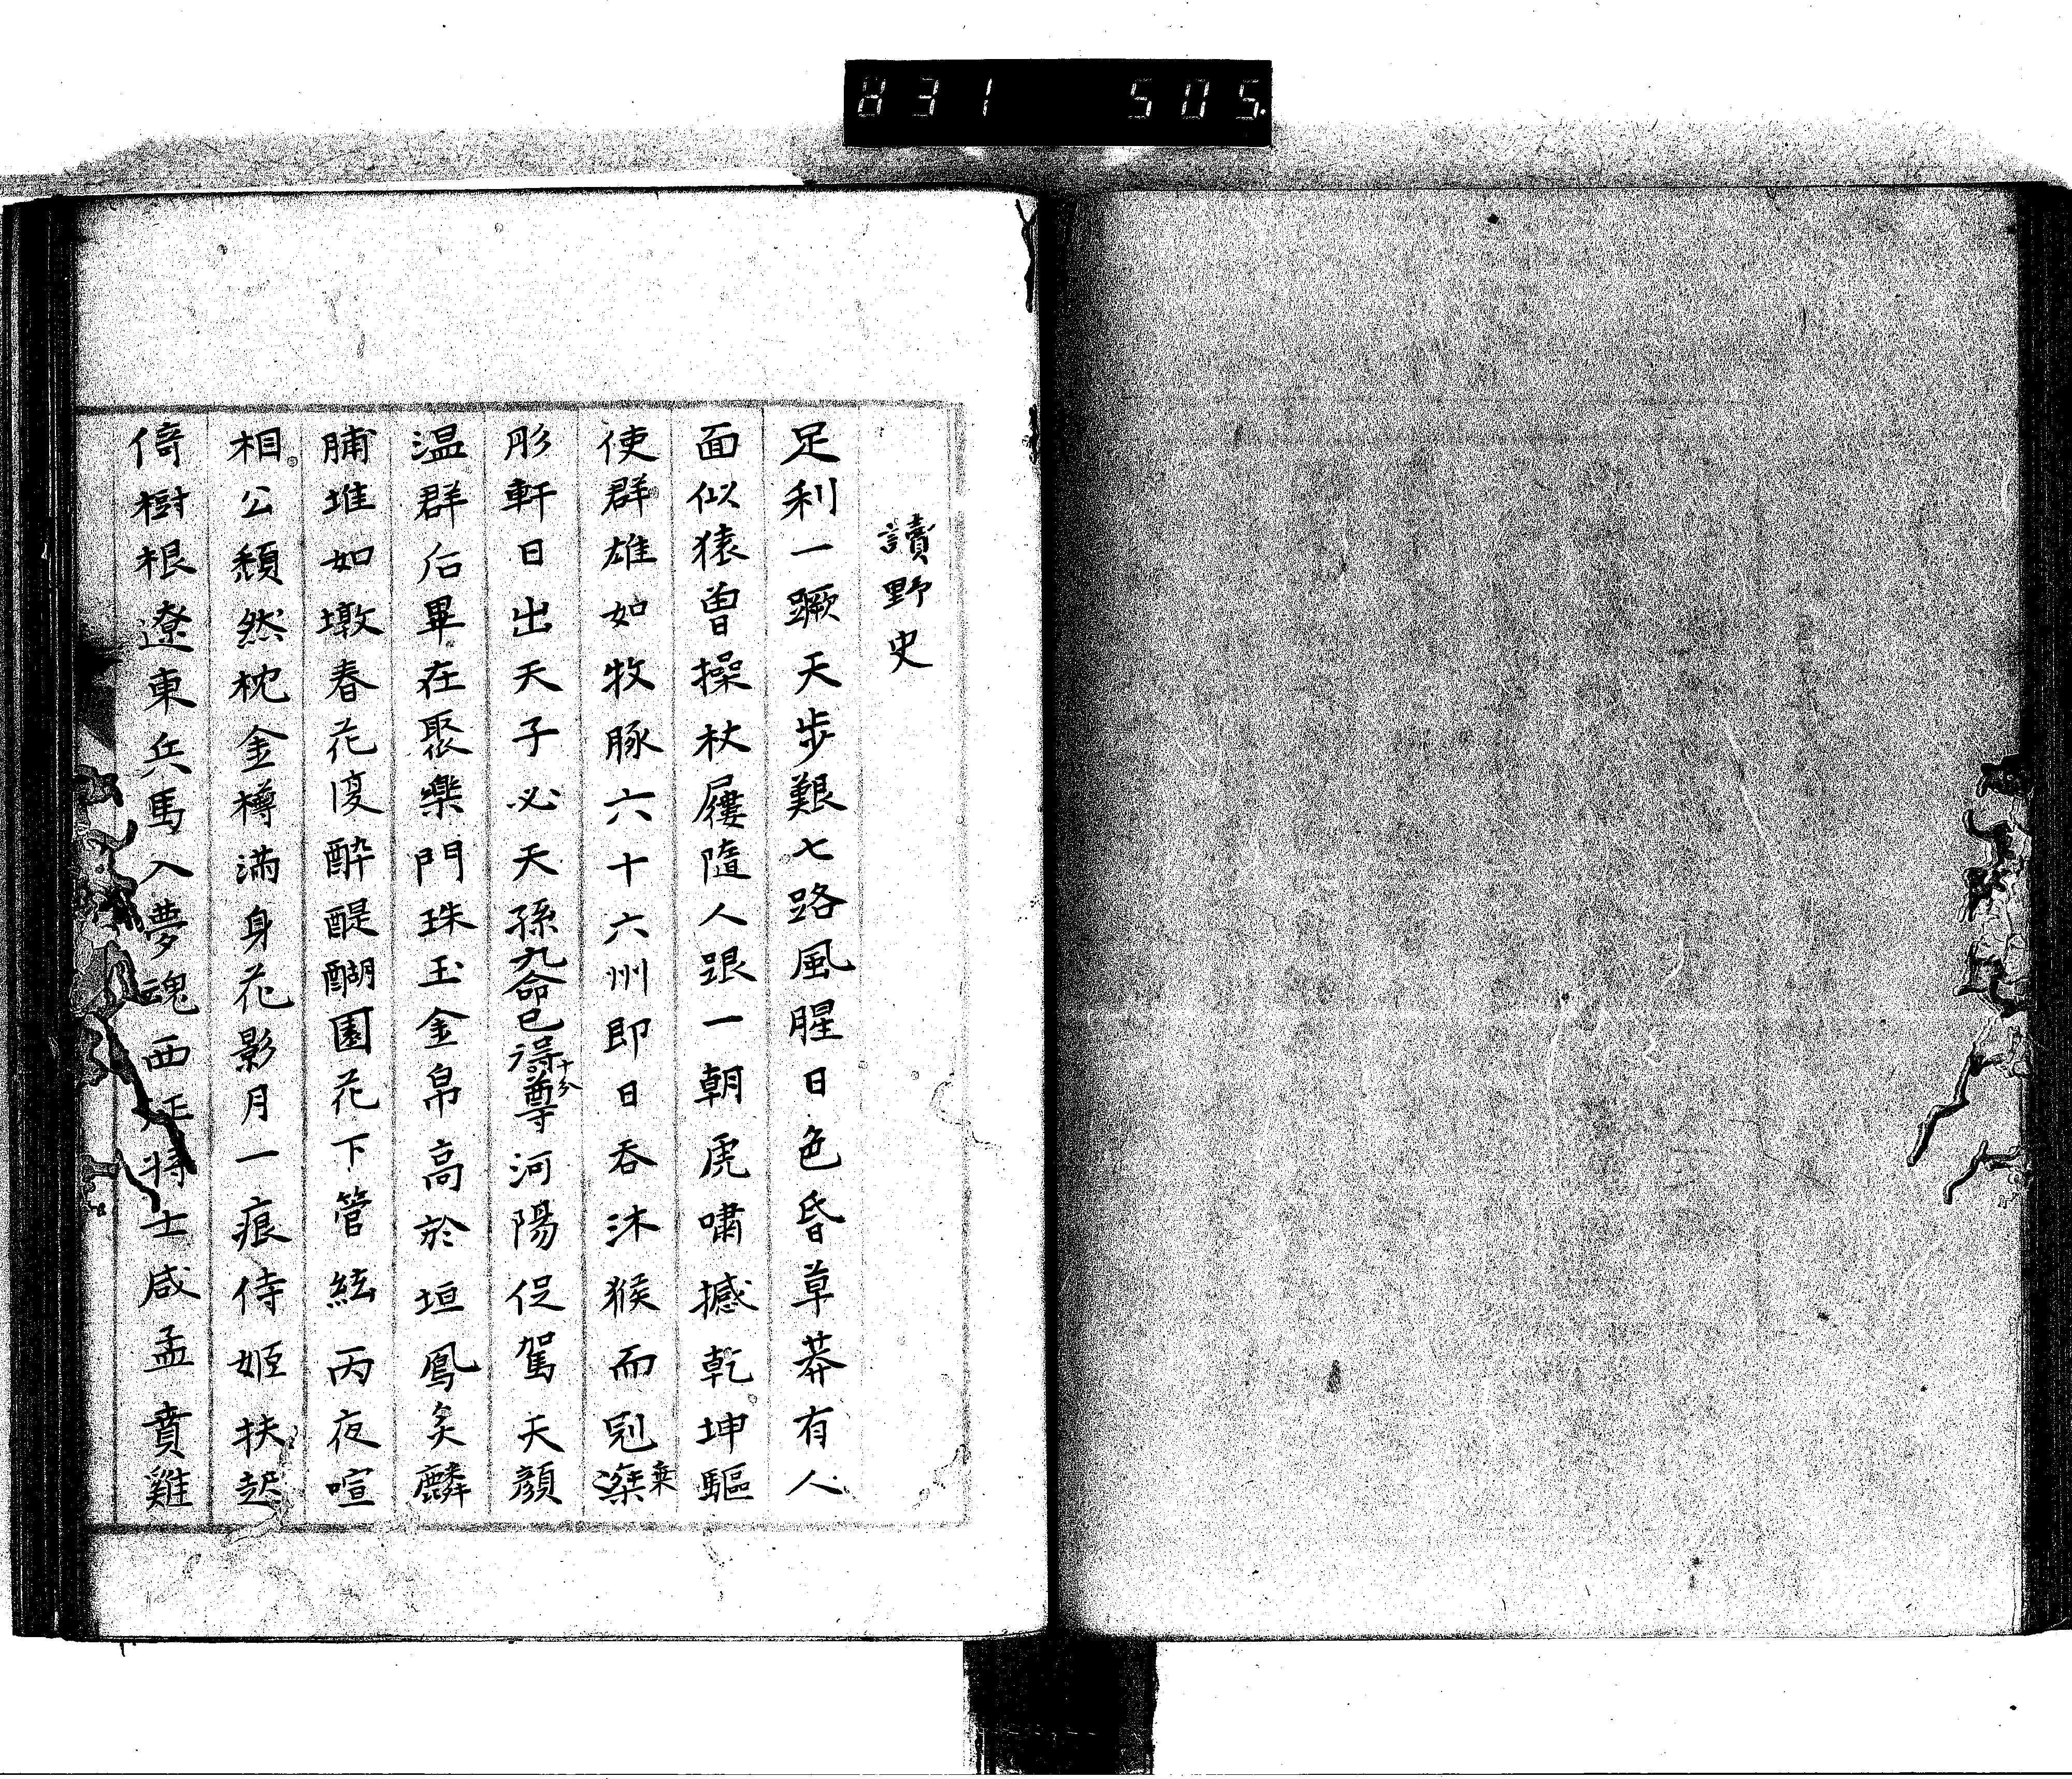 831 505.
讀野史
足利一蹶天步艱七路風腥日色昏草莽有人
面似猿曽操杖屨隨人跟一朝虎嘯撼乾坤驅
使群雄如牧豚六十六州即日吞沐猴而冠乘
彤軒日出天子必天孫九命已得十分尊河陽促駕天顔
温群后畢在聚樂門珠玉金帛高於垣鳳炙麟
脯堆如墩春花復酔醍醐園花下管絃丙夜喧
相公頽然枕金樽滿身花影月一痕侍姬扶起
倚樹根遼東兵馬入夢魂西征將士咸孟賁雞